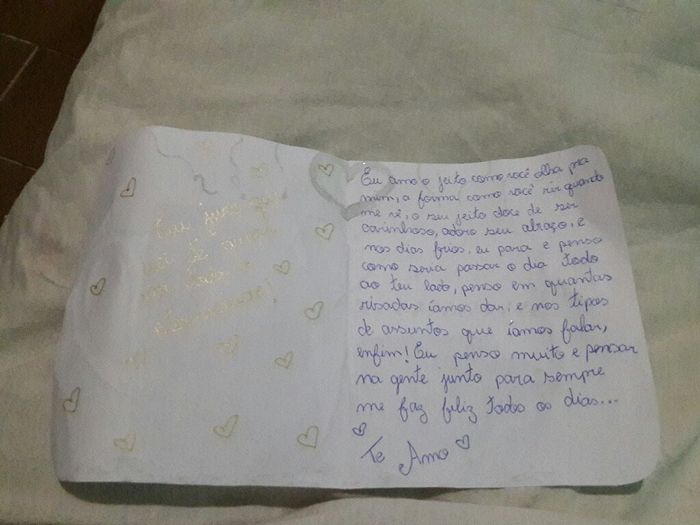 Eu juro
Eu amo o jeito como você olha pra
mim, a forma como você rir quando
me vê, o seu jeito doce de ser
carinhoso, adoro seu abraço, e
nos dias frios, eu para e penso
como seria passar o dia todo
ao teu lado, penso em quantas
risadas íamos dar, e nos tipos
de assuntos que íamos falar,
enfim! Eu penso muito e pensar
na gente junto para sempre
me faz feliz todo os dias...
Te Amo